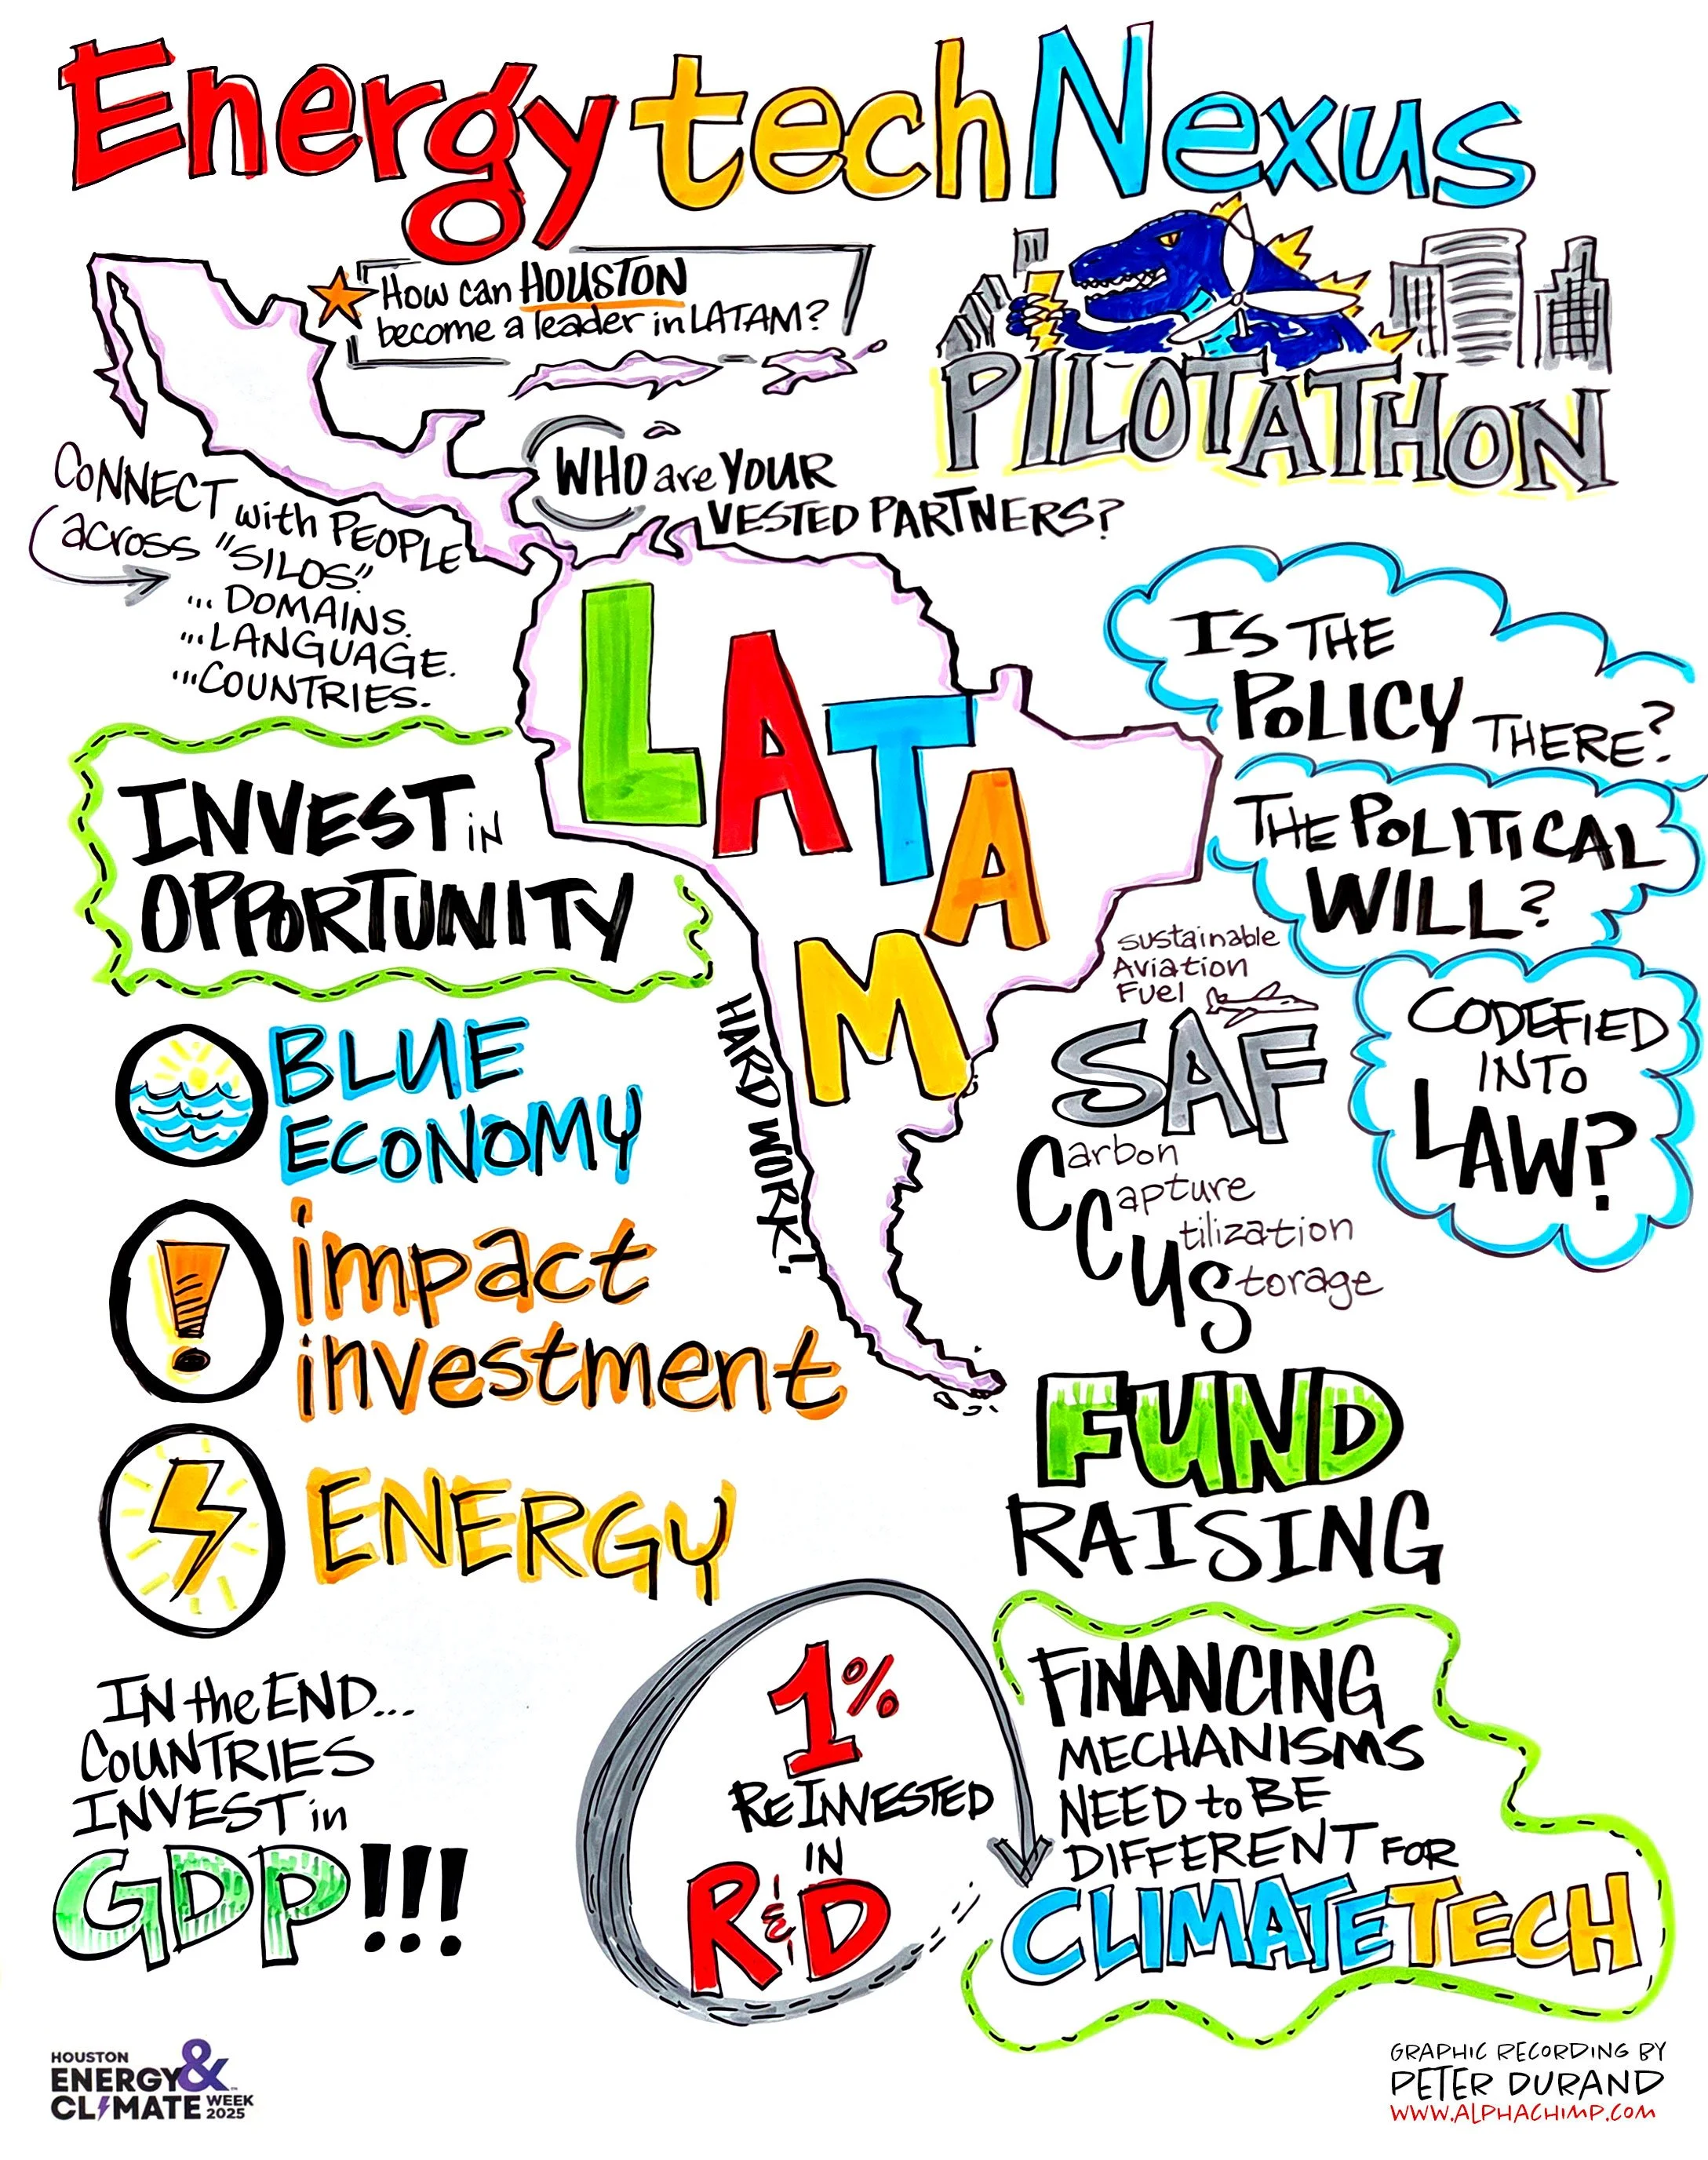 Energy tech Nexus
PILOTATHON
How can HOUSTON
become a leader in LATAM?
WHO are YOUR
VESTED PARTNERS?
CONNECT with PEOPLE
across "SILOS"
... DOMAINS.
... LANGUAGE.
... COUNTRIES.
LATAM
HARD WORK!
IS THE
POLICY THERE?
THE POLITICAL
WILL?
CODEFIED
INTO
LAW?
INVEST IN
OPPORTUNITY
BLUE
ECONOMY
impact
investment
ENERGY
sustainable
Aviation
Fuel
SAF
Carbon
Capture
Utilization
Storage
FUND
RAISING
IN the END...
COUNTRIES
INVEST in
GDP!!!
1%
REINVESTED
IN
R&D
FINANCING
MECHANISMS
NEED to BE
DIFFERENT FOR
CLIMATETECH
HOUSTON
ENERGY &
CLIMATE WEEK
2025
GRAPHIC RECORDING BY
PETER DURAND
WWW.ALPHACHIMP.COM